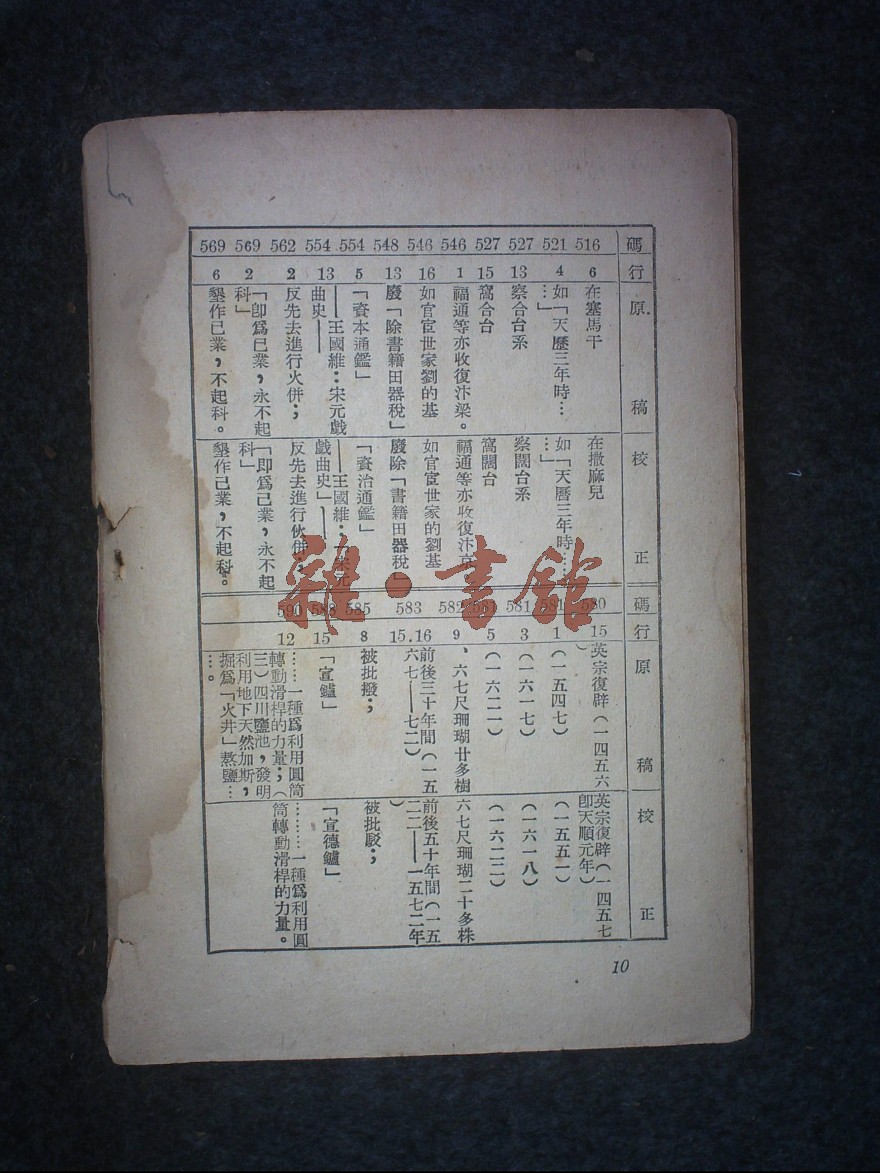 碼 行 原稿 校正
516 6 在塞馬干 在撒麻兒
521 4 如「天歷三年時…… 如「天曆三年時……
…」 …」
527 13 察合台系 察闊台系
527 15 窩合台 窩闊台
546 1 福通等亦收復汴梁。 福通等亦收復汴京
546 16 如官宦世家劉的基 如官宦世家的劉基
548 13 廢「除書籍田器稅」 廢除「書籍田器稅」
554 5 「資本通鑑」 「資治通鑑」
554 13 ——王國維：宋元戲 ——王國維：「宋元
曲史—— 戲曲史」——
562 2 反先去進行火併； 反先去進行伙併；
569 2 「卽爲已業，永不起 「即爲己業，永不起
科」 科」
569 6 墾作已業，不起科。 墾作己業，不起科。
碼 行 原稿 校正
580 15 英宗復辟（一四五六 英宗復辟（一四五七
） 卽天順元年）
581 1 （一五四七） （一五五二）
581 3 （一六一七） （一六一八）
581 5 （一六二一） （一六二二）
582 9 、六七尺珊瑚廿多樹 六七尺珊瑚二十多株
583 15.16 前後三十年間（一五 前後五十年間（一五
六七——七二） 二二——一五七二年
）
585 8 被批撥； 被批駁；
588 15 「宣鑪」 「宣德鑪」
590 12 ……一種爲利用圓筒 ………一種爲利用圓
轉動滑桿的力量；（ 筒轉動滑桿的力量。
三）四川鹽池，發明
利用地下天然加斯，
掘爲「火井」熬鹽…
…。
10
雜·書館